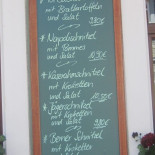 mit Bratkartoffeln
und Salat 9,80€
* Napolischnitzel
mit Pommes
und Salat 10,90€
* Käserahmschnitzel
mit Kroketten
und Salat 10,50€
* Jägerschnitzel
mit Kroketten
und Salat
* Berner Schnitzel
mit Kroketten